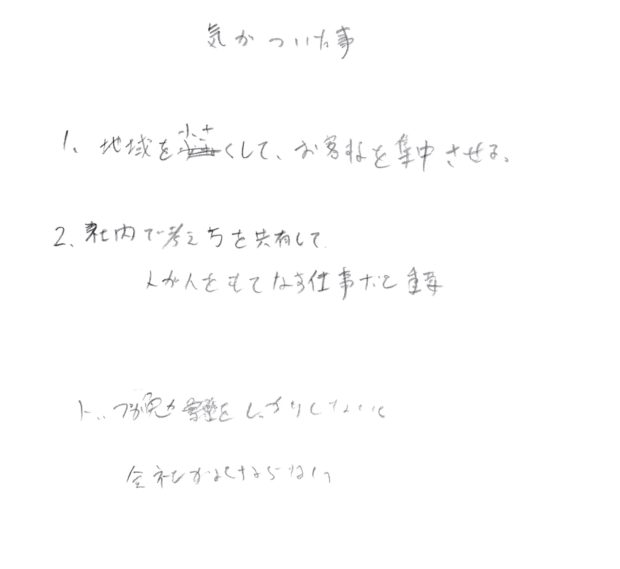 気がついた事
1、地域を小さくして、お客様を集中させる。
2、社内で考え方を共有して
人が人をもてなす仕事だと
トップが しっかりしないと
会社がよくならない